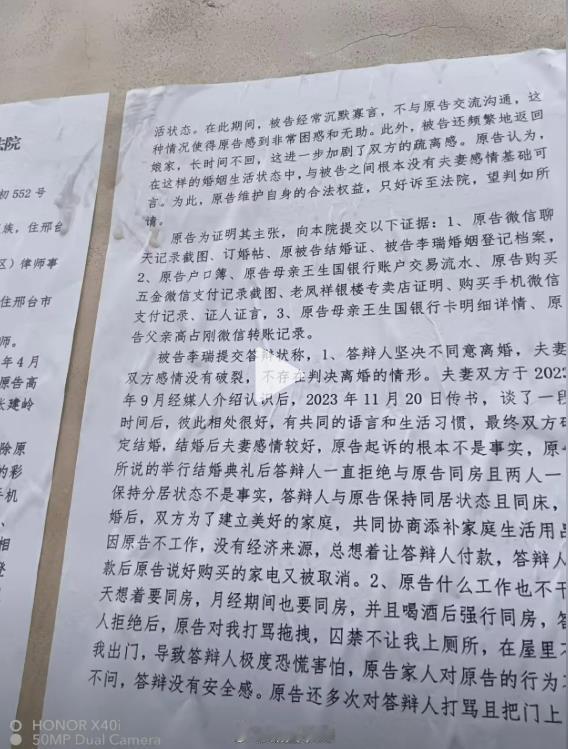 法院
初 552 号
族，住邢台
区）律师事
住邢台市
师。
年 4 月
原告高
长建岭
除原
的彩
手机
、
相
登
活状态。在此期间，被告经常沉默寡言，不与原告交流沟通，这
种情况使得原告感到非常困惑和无助。此外，被告还频繁地返回
娘家，长时间不回，这进一步加剧了双方的疏离感。原告认为，
在这样的婚姻生活状态中，与被告之间根本没有夫妻感情基础可
言。为此，原告维护自身的合法权益，只好诉至法院，望判如所
请。
原告为证明其主张，向本院提交以下证据：1、原告微信聊
天记录截图、订婚帖、原被告结婚证、被告李瑞婚姻登记档案，
2、原告户口簿、原告母亲王生国银行账户交易流水、原告购买
五金微信支付记录截图、老凤祥银楼专卖店证明、购买手机微信
支付记录、证人证言，3、原告母亲王生国银行卡明细详情、原
告父亲高占刚微信转账记录。
被告李瑞提交答辩状称，1、答辩人坚决不同意离婚，夫妻
双方感情没有破裂，不存在判决离婚的情形。夫妻双方于 2023
年 9 月经媒人介绍认识后，2023 年 11 月 20 日传书，谈了一段
时间后，彼此相处很好，有共同的语言和生活习惯，最终双方确
定结婚，结婚后夫妻感情较好，原告起诉的根本不是事实，原告
所说的举行结婚典礼后答辩人一直拒绝与原告同房且两人一
保持分居状态不是事实，答辩人与原告保持同居状态且同床，
婚后，双方为了建立美好的家庭，共同协商添补家庭生活用品
因原告不工作，没有经济来源，总想着让答辩人付款，答辩人
款后原告说好购买的家电又被取消。2、原告什么工作也不干
天想着要同房，月经期间也要同房，并且喝酒后强行同房，答
人拒绝后，原告对我打骂拖拽，囚禁不让我上厕所，在屋里不
我出门，导致答辩人极度恐慌害怕，原告家人对原告的行为不
不问，答辩没有安全感。原告还多次对答辩人打骂且把门上
HONOR X40i
50MP Dual Camera